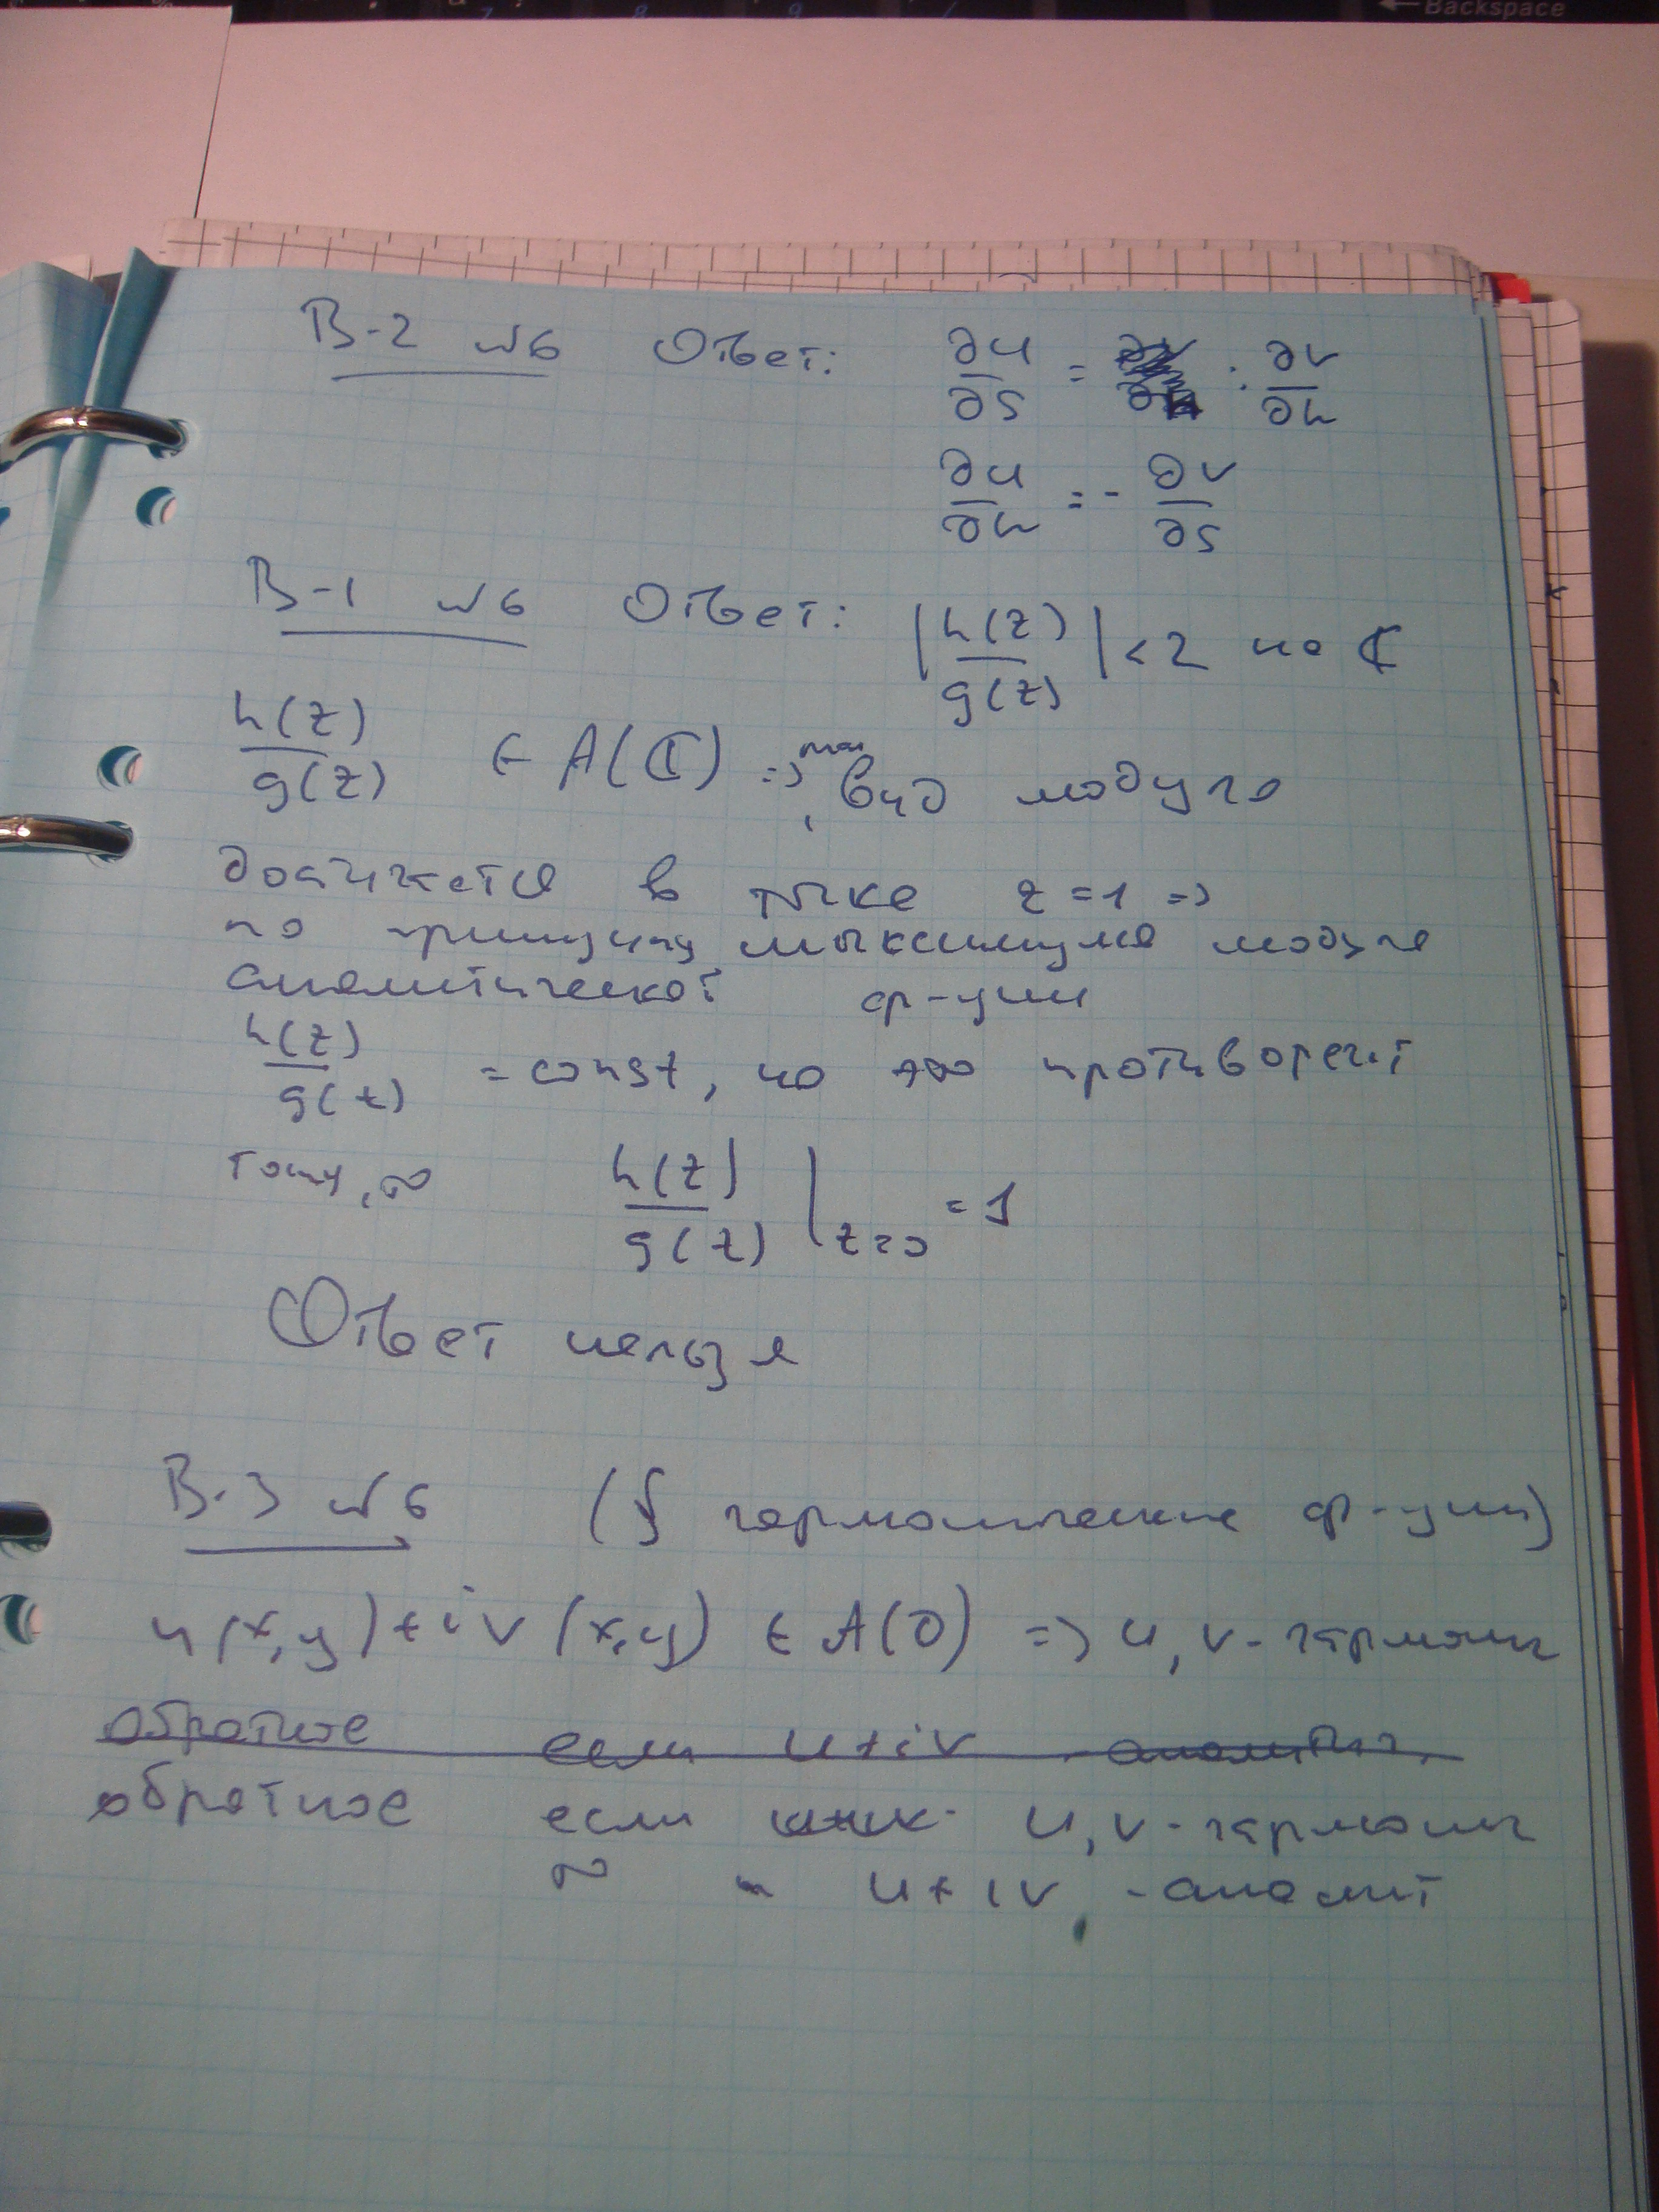 Backspace
В-2 №6 Ответ: ∂u/∂s = ∂v/∂n
∂u/∂n = - ∂v/∂s
В-1 №6 Ответ: |h(z)/g(z)| < 2 на ℂ
h(z)/g(z) ∈ A(ℂ) => max, вид модуля
достижется в точке z=1 =>
по принципу максимума модуля
аналитической ф-ции
h(z)/g(z) = const, но это противоречит
тому, что h(z)/g(z) |z=0 = 1
Ответ нельзя
В-3 №6 (§ гармонические ф-ции)
u(x,y)+iv(x,y) ∈ A(D) => u,v-гармонич
обратное если u+iv аналитич.
обратное если u,v-гармонич
то u+iv -аналит